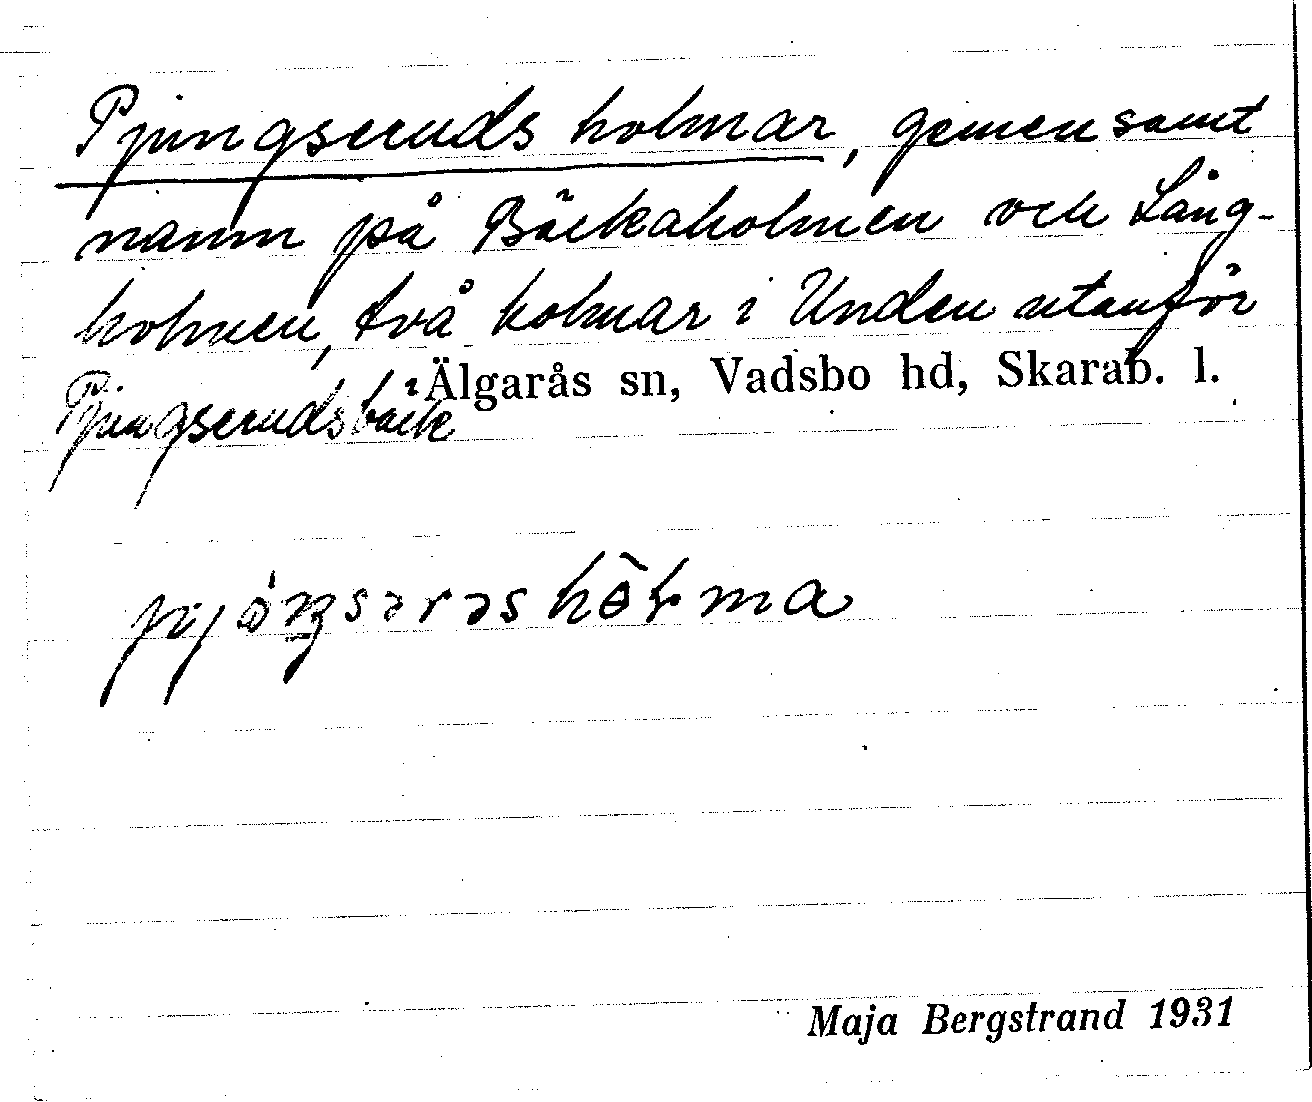 Pjungseruds holmar, gemensamt
namn på Bäckaholmen och Lång-
holmen, två holmar i Unden utanför
Pjungserudsbäck
i Älgarås sn, Vadsbo hd, Skarab. l.
Maja Bergstrand 1931